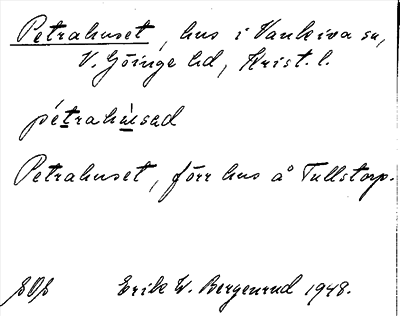 Petrahuset, hus i Vankiva sn,
V. Göinge hd, Krist. l.
pétrahùsad
Petrahuset, förr hus å Tullstorp.
Erik W. Bergenrud 1948.